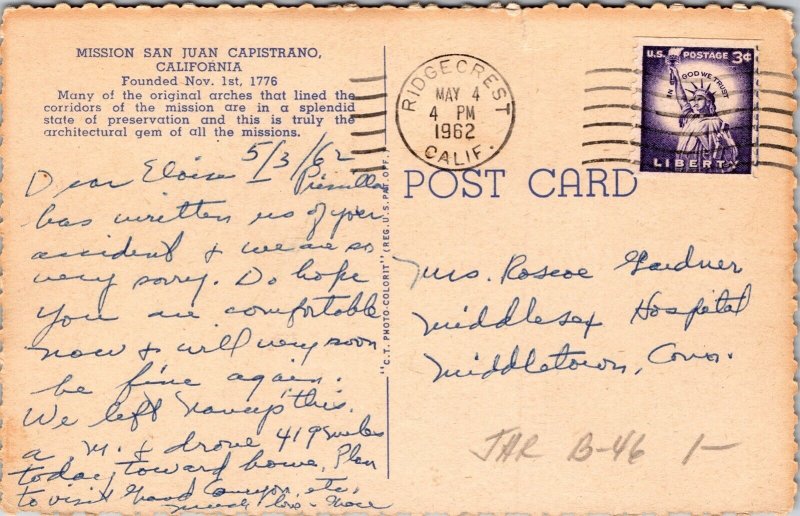 MISSION SAN JUAN CAPISTRANO,
CALIFORNIA
Founded Nov. 1st, 1776
Many of the original arches that lined the
corridors of the mission are in a splendid
state of preservation and this is truly the
architectural gem of all the missions.
5/3/62
Dear Eloise – Priscilla
has written us of your
accident & we are so
very sorry. Do hope
you are comfortable
now & will very soon
be fine again.
We left this
a.m. & drove 419 miles
today toward home. Plan
to visit Grand Canyon, etc.
Much love –
"C.T. PHOTO-COLORIT" (REG. U.S. PAT. OFF.)
RIDGECREST
MAY 4
4 PM
1962
CALIF.
U.S. POSTAGE 3¢
IN GOD WE TRUST
LIBERTY
POST CARD
Mrs. Roscoe Gardner
Middlesex Hospital
Middletown, Conn.
B-46 1–